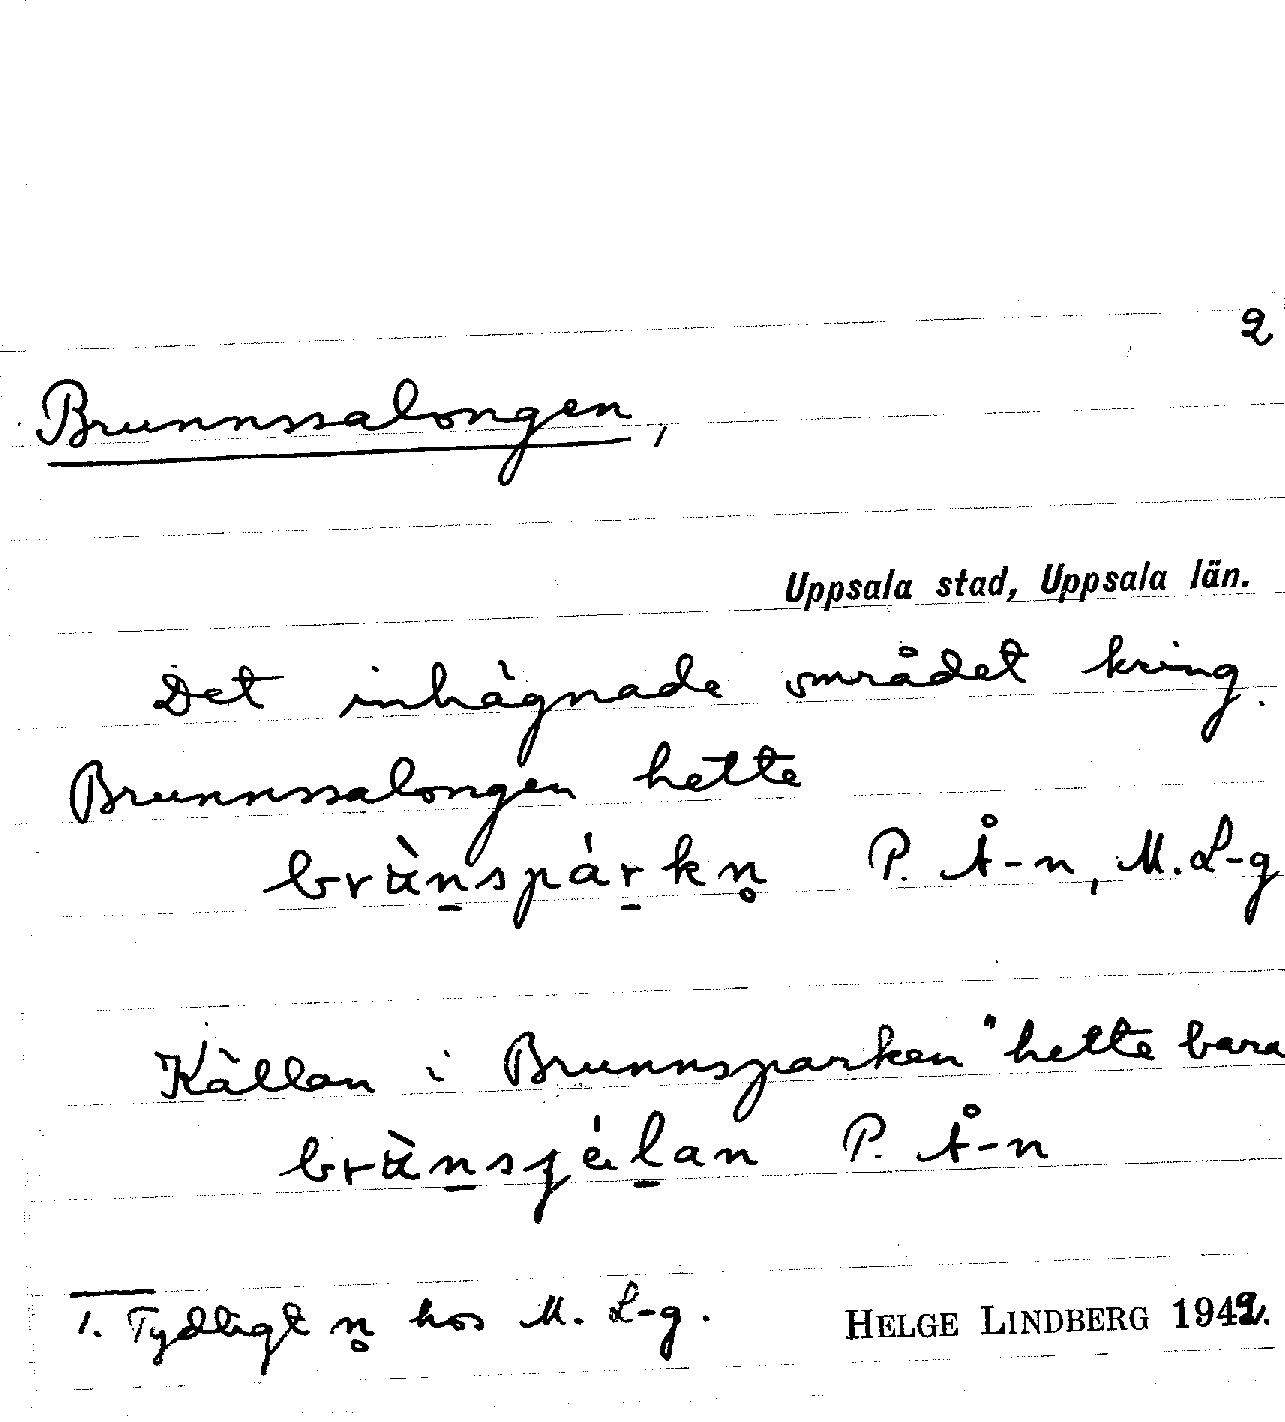 2
Brunnssalongen,
Uppsala stad, Uppsala län.
Det inhägnade området kring
Brunnssalongen hette
bràn̠spár̠kn̥ P. Å-n, M. L-g
Källan i Brunnsparken "hette bara
P. Å-n
1. Tydligt n̥ hos M. L-g.
HELGE LINDBERG 1942.